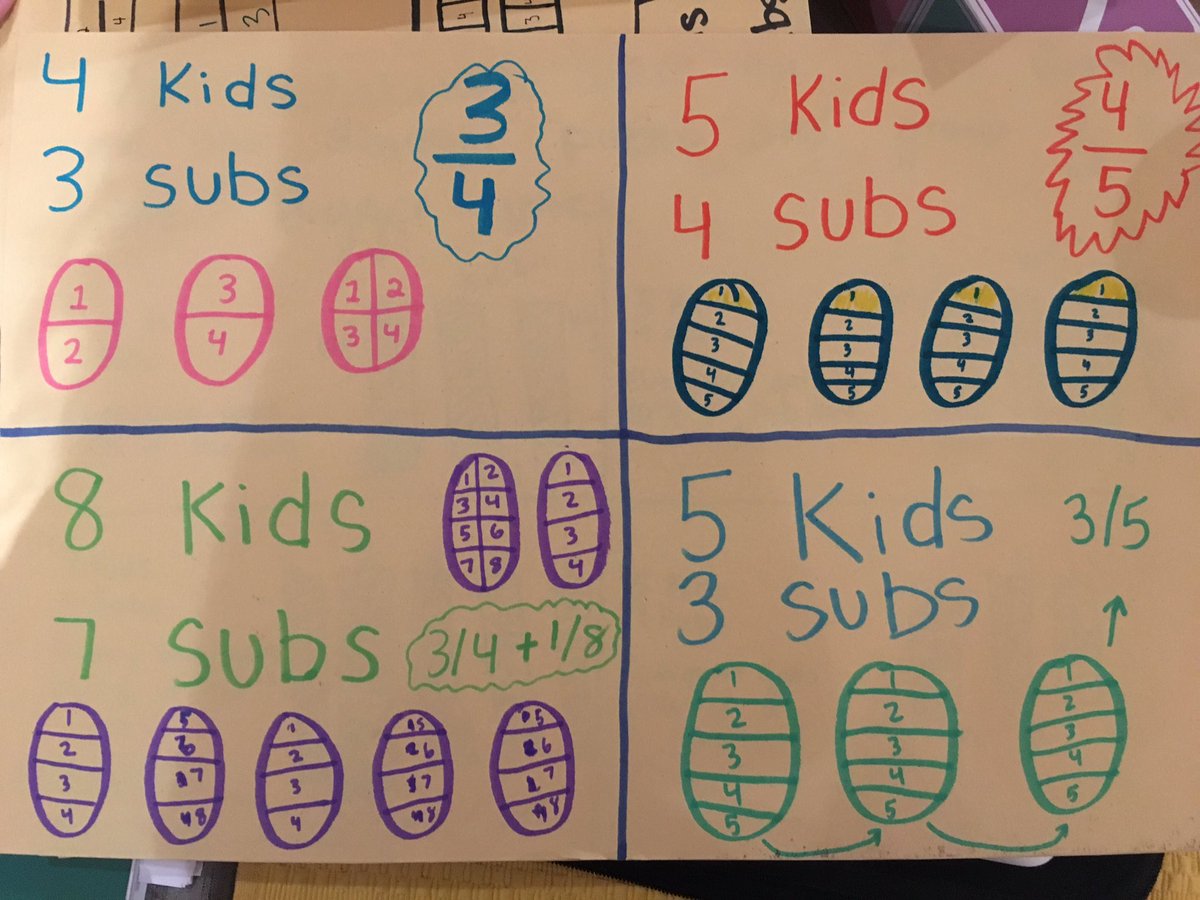 4 Kids
3 subs
3
4
1
2
3
4
1 2
3 4
5 Kids
4 subs
4
5
1
2
3
4
5
1
2
3
4
5
1
2
3
4
5
1
2
3
4
5
8 Kids
7 subs
3/4 + 1/8
1 2
3 4
5 6
7 8
1
2
3
4
1
2
3
4
5
6
7
8
1
2
3
4
5
6
7
8
5
6
7
8
5 Kids
3 subs
3/5
1
2
3
4
5
1
2
3
4
5
1
2
3
4
5